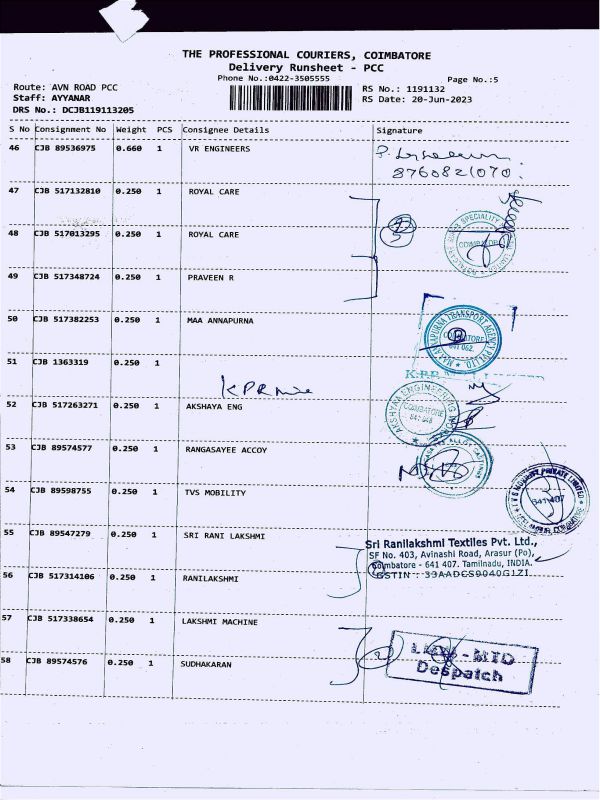 THE PROFESSIONAL COURIERS, COIMBATORE
Delivery Runsheet - PCC
Phone No.:0422-3505555
Page No.:5
Route: AVN ROAD PCC
RS No.: 1191132
Staff: AYYANAR
RS Date: 20-Jun-2023
DRS No.: DCJB119113205
S No Consignment No Weight PCS Consignee Details Signature
46 CJB 89536975 0.660 1 VR ENGINEERS
8760821070
47 CJB 517132810 0.250 1 ROYAL CARE
48 CJB 517013295 0.250 1 ROYAL CARE
COIMBATORE
49 CJB 517348724 0.250 1 PRAVEEN R
50 CJB 517382253 0.250 1 MAA ANNAPURNA
MAA ANNAPURNA TRANSPORT AGENCY PVT LTD.
COIMBATORE
641 062.
51 CJB 1363319 0.250 1
KPR mill
K.P.R
52 CJB 517263271 0.250 1 AKSHAYA ENG
AKSHAYA ENGINEERING
COIMBATORE
53 CJB 89574577 0.250 1 RANGASAYEE ACCOY
54 CJB 89598755 0.250 1 TVS MOBILITY
TVS MOBILITY PRIVATE LIMITED
641 407
55 CJB 89547279 0.250 1 SRI RANI LAKSHMI
Sri Ranilakshmi Textiles Pvt. Ltd.,
SF No. 403, Avinashi Road, Arasur (Po),
Coimbatore - 641 407. Tamilnadu, INDIA.
GSTIN : 33AADCS9040G1ZI
56 CJB 517314106 0.250 1 RANILAKSHMI
57 CJB 517338654 0.250 1 LAKSHMI MACHINE
LMW-MTD
Despatch
58 CJB 89574576 0.250 1 SUDHAKARAN